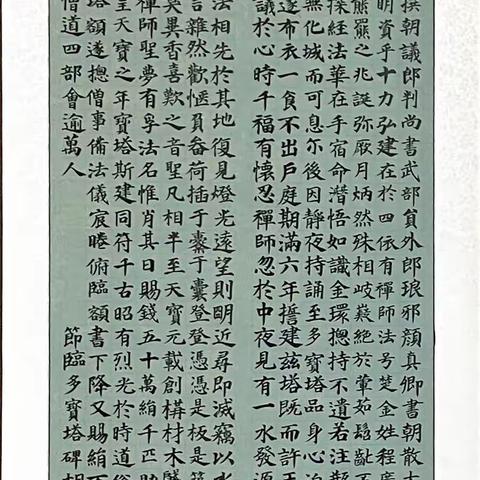 撰朝議郎判尚書武部貟外郎琅邪顏真卿書朝散大
明資乎十力弘建在於四依有禪師法号楚金姓程廣
熊羆之兆誕弥厥月炳然殊相岐嶷絕於葷茹髫齓
探經法華在手宿命潛悟如識金環揔持不遺若注
無化城而可息尔後因靜夜持誦至多寶塔品身心泊
遂布衣一食不出戶庭期滿六年誓建茲塔既而許王
議於心時千福有懷忍禪師忽於中夜見有一水發源
法相先於其地復見燈光遠望則明近尋即滅竊以水
言雜然歡愜負畚荷插于橐于囊登登憑憑是板是築
吴異香喜歎之音聖凡相半至天寶元載創構材木肇
禪師聖夢有孚法名惟肖其日賜錢五十萬絹千匹助
至天寶之年寶塔斯建同符千古昭有烈光於時道俗
塔額遂揔僧事備法儀宸睠俯臨額書下降又賜絹百
僧道四部會逾萬人
節臨多寶塔碑胡